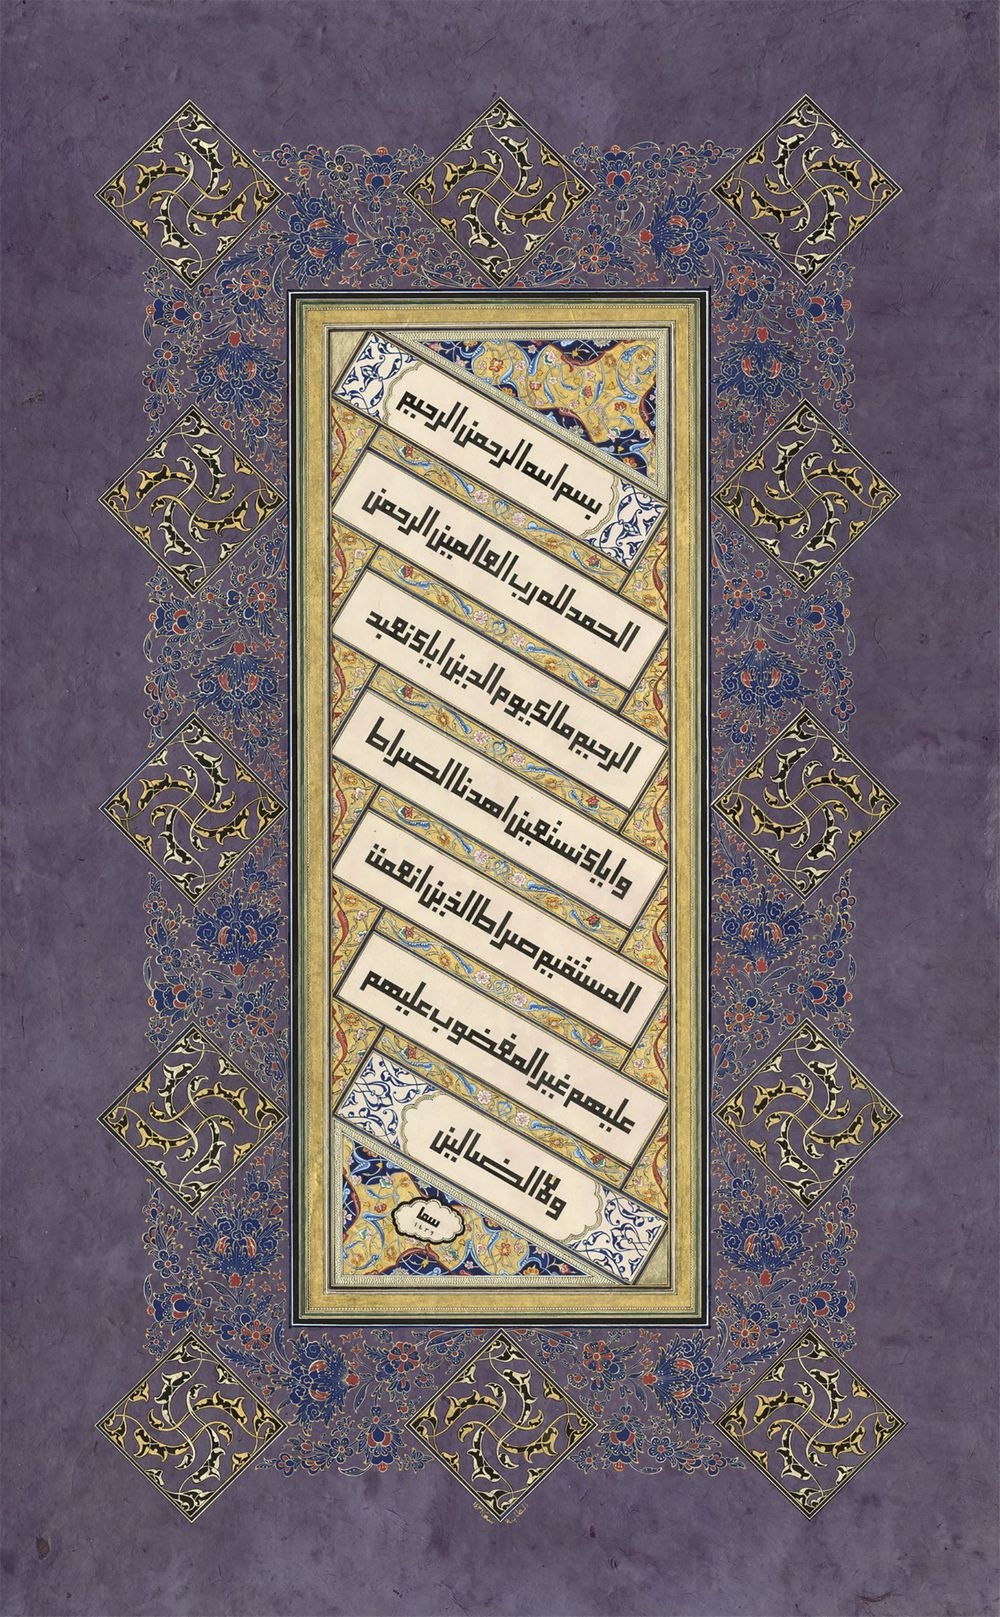 بسم الله الرحمن الرحيم
الحمد لله رب العالمين الرحمن
الرحيم مالك يوم الدين اياك نعبد
واياك نستعين اهدنا الصراط
المستقيم صراط الذين انعمت
عليهم غير المغضوب عليهم
ولا الضالين